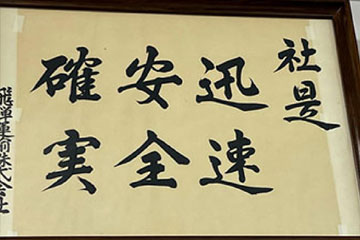 社是
迅速
安全
確実
飛騨運輸株式会社